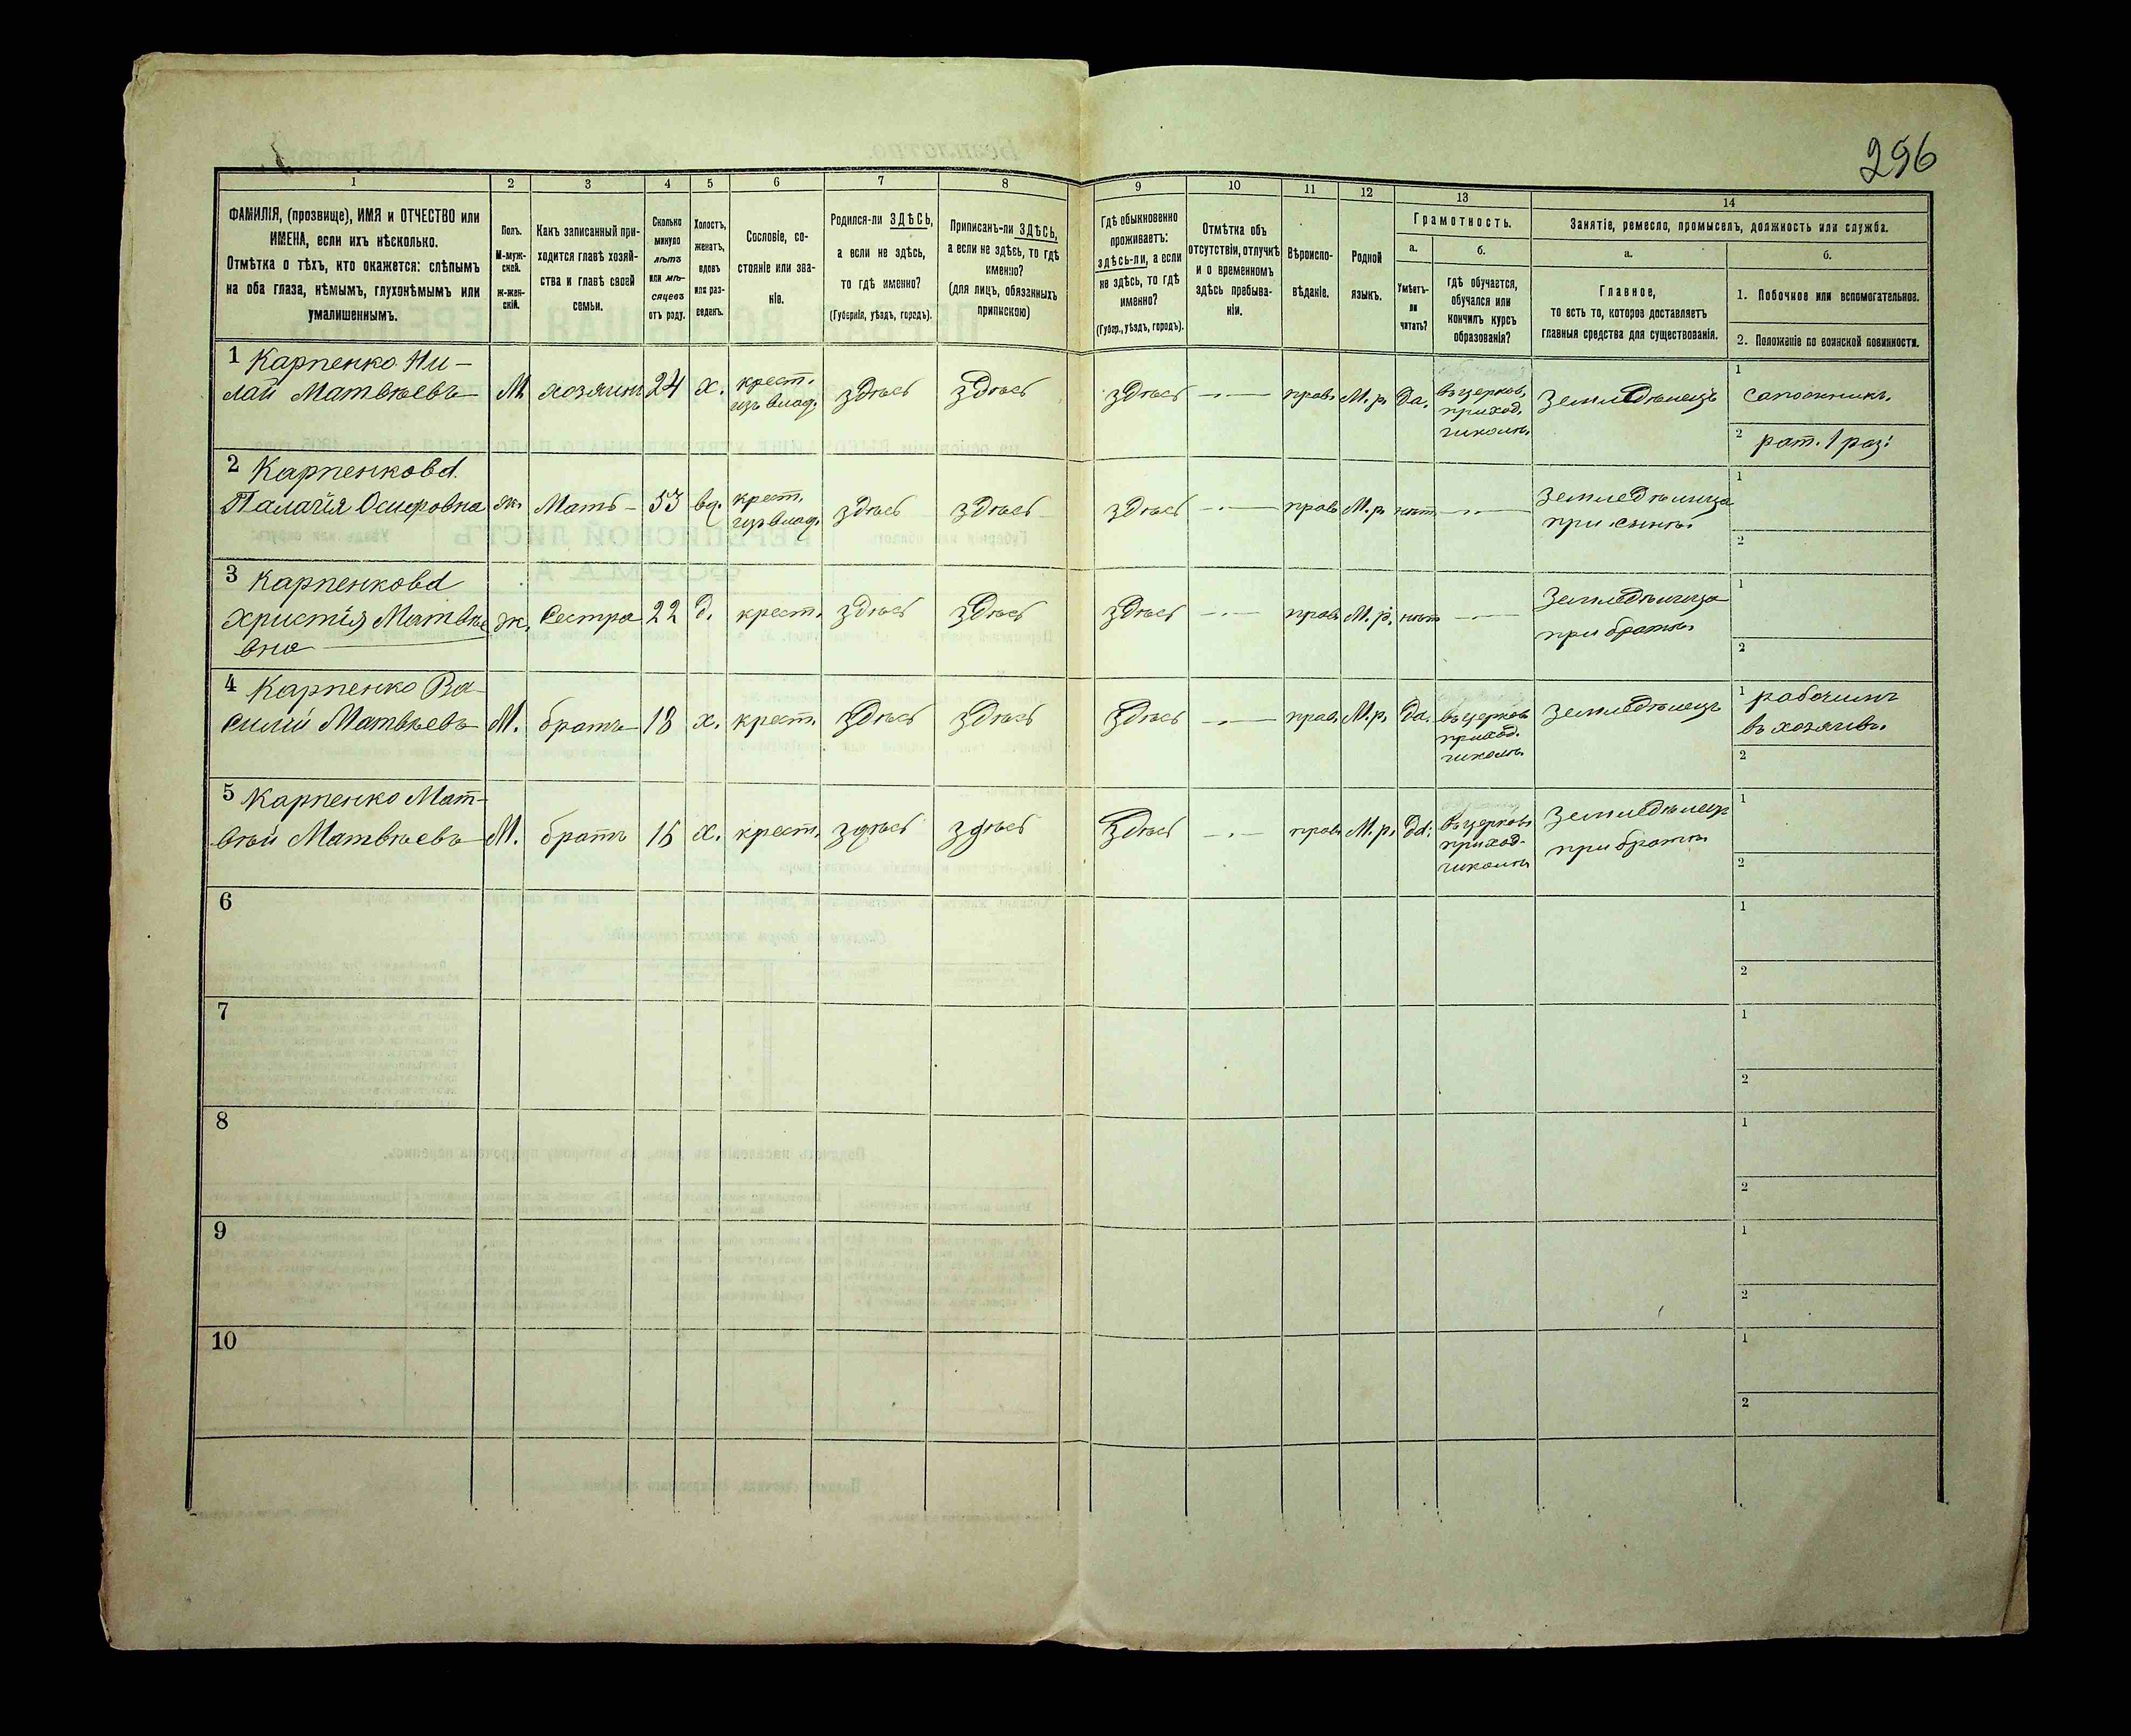 296
1
2
3
4
5
6
7
8
9
10
11
12
13
14
ФАМИЛІЯ, (прозвище), ИМЯ и ОТЧЕСТВО или
ИМЕНА, если ихъ нѣсколько.
Отмѣтка о тѣхъ, кто окажется: слѣпымъ
на оба глаза, нѣмымъ, глухонѣмымъ или
умалишеннымъ.
Полъ.
М-муж-
ской.
Ж-жен-
скій.
Какъ записанный при-
ходится главѣ хозяй-
ства и главѣ своей
семьи.
Сколько
минуло
лѣтъ
или мѣ-
сяцевъ
отъ роду.
Холостъ,
женатъ,
вдовъ
или раз-
веденъ.
Сословіе, со-
стояніе или зва-
ніе.
Родился-ли ЗДѢСЬ,
а если не здѣсь,
то гдѣ именно?
(Губернія, уѣздъ, городъ).
Приписанъ-ли ЗДѢСЬ,
а если не здѣсь, то гдѣ
именно?
(для лицъ, обязанныхъ
припискою)
Гдѣ обыкновенно
проживаетъ:
здѣсь-ли, а если
не здѣсь, то гдѣ
именно?
(Губер., уѣздъ, городъ).
Отмѣтка объ
отсутствіи, отлучкѣ
и о временномъ
здѣсь пребыва-
ніи.
Вѣроиспо-
вѣданіе.
Родной
языкъ.
Грамотность.
а.
Умѣетъ-
ли
читать?
б.
гдѣ обучается,
обучался или
кончилъ курсъ
образованія?
Занятіе, ремесло, промыселъ, должность или служба.
а.
Главное,
то есть то, которое доставляетъ
главныя средства для существованія.
б.
1. Побочное или вспомогательное.
2. Положеніе по воинской повинности.
1 Карпенко Ни-
лай Матвѣевъ М. хозяинъ 24 х. крест. изъ влад. здѣсь здѣсь здѣсь —·— прав. М.р. да. въ церков. приход. школѣ Земледѣлецъ
1 сапожникъ.
2 рат. 1 раз.
2 Карпенкова
Палагія Осиповна ж. Мать 53 вд. крест. изъ влад. здѣсь здѣсь здѣсь —·— прав. М.р. нѣт —·— Земледѣлица
при сынѣ.
1
2
3 Карпенкова
Христія Матвѣе
вна ж. Сестра 22 д. крест. здѣсь здѣсь здѣсь —·— прав. М.р. нѣт —·— Земледѣлица
при братѣ.
1
2
4 Карпенко Ва-
силій Матвѣевъ М. братъ 18 х. крест. здѣсь здѣсь здѣсь —·— прав. М.р. да. въ церков. приход. школѣ Земледѣлецъ
1 рабочимъ
въ хозяйв.
2
5 Карпенко Мат-
вѣй Матвѣевъ М. братъ 15 х. крест. здѣсь здѣсь здѣсь —·— прав. М.р. да. въ церков. приход. школѣ Земледѣлецъ
при братѣ
1
2
6
1
2
7
1
2
8
1
2
9
1
2
10
1
2